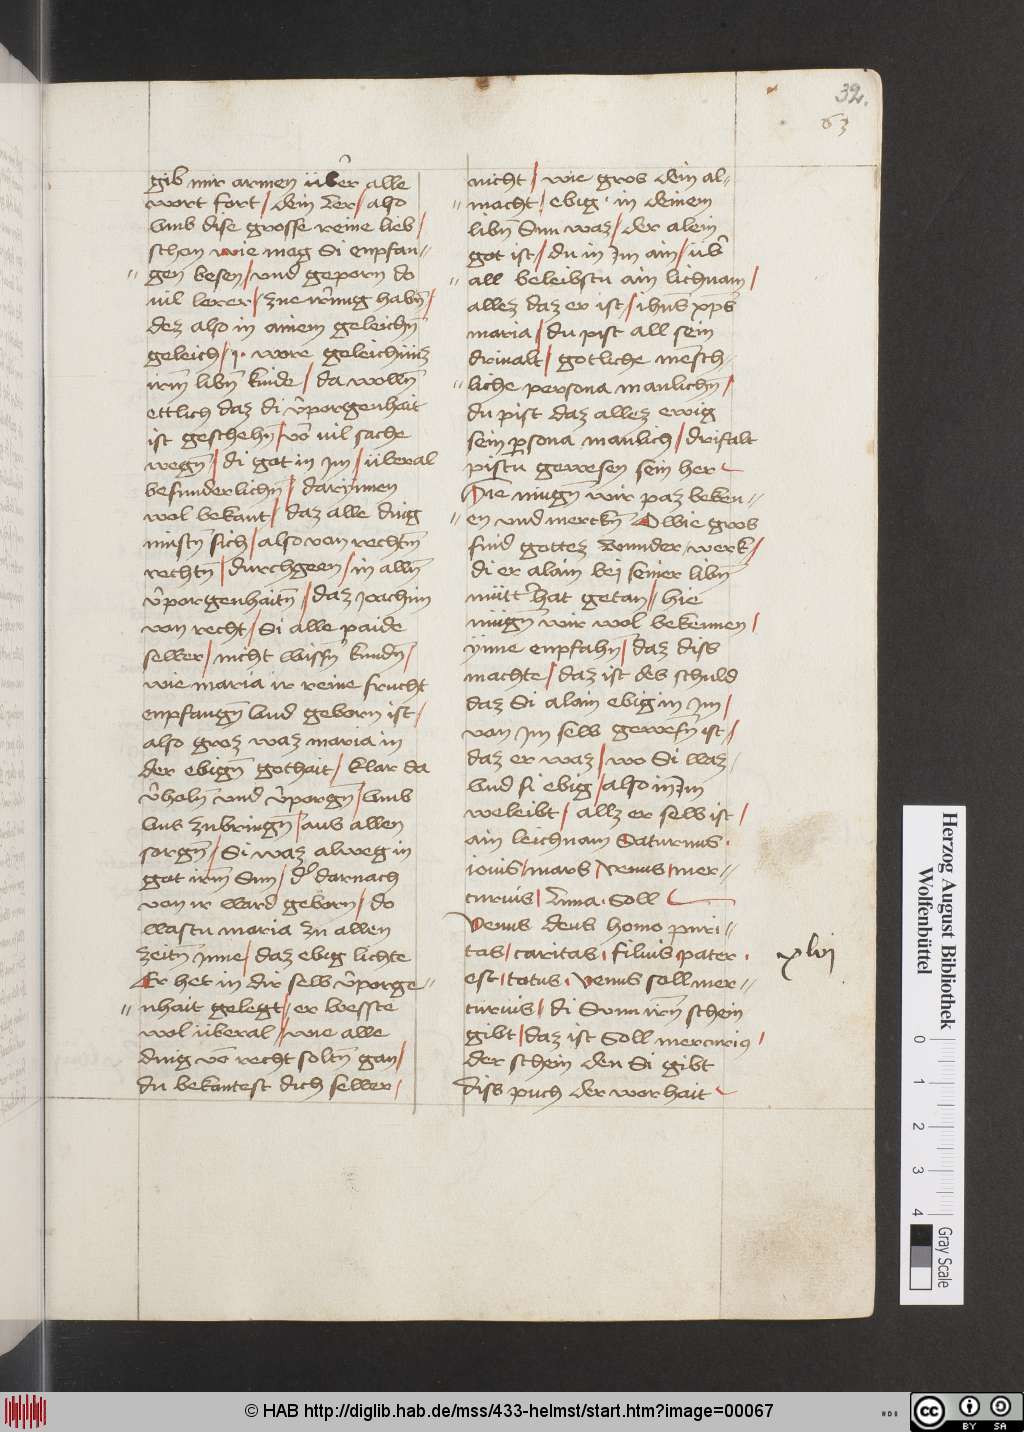 32.
63
gib mir armen über alle
wort fort / dein ler / also
vmb dise grosse reine lieb /
schon wie mag Si enpfan"
" gen besen / vnd geporn do
vil lerer / habn̄ /
dez also in ainem geleichn̄
geleich / wore
irm̄ libn̄ kinde / da wolln̄
ettlich daz di v̄porgenhait
ist geschehn̄ / vō vil sache
wegn̄ / di got in jm / überal
besunderlichn̄ / darjnnen
wol bekant / daz alle ding
mustn̄ sich / also von rechtn̄
rechtn̄ / durchgeen / in alln̄
v̄porgenhaitn̄ / daz joachim
von recht / Si alle paide
selber / nicht wissn̄ kundn̄ /
wie maria ir reine frucht
enpfangn̄ vnd geborn ist /
also groz waz maria in
der ebign̄ gothait / klar da
v̄holn̄ vnd v̄porgn̄ / vmb
vns zubringn̄ / aus allen
sorgn̄ / Si waz alweg in
got irm̄ Sun / d̄ darnach
von ir ward geborn / do
wastu maria zu allen
zeitn̄ jnne / daz ebig lichte
Er het in dir selb v̄porge"
" nhait gelegt / er wesste
wol überal / wie alle
ding vō recht soltn̄ gan /
du bekantest dich selber /
nicht / wie gros dein al"
" macht / ebig · in deinem
libn̄ Sun waz / der alein
got ist / du in jm ain / üb̄
" all beleibstu ain lichnam /
allez daz er ist / ih̄us xp̄s
maria / du pist all sein
driualt / gotliche mensch"
" liche persona manlichn̄ /
du pist daz allez ewig
sein p̱sona manlich / drifalt
pistu gewesen sein her
Hie mugn̄ wir paz beken"
" en vnd merckn̄ O wie gros
sind gottez wunder / werk /
di er alain bei seiner libn̄
mütt̄ hat getan / hie
mügn̄ wir wol bekennen /
ynne enpfahn̄ / daz diss
machte / daz ist des schuld
daz Si alain ebig in jm /
von jm selb gewesn̄ ist /
daz er waz / wo Si waz /
vnd si ebig / also in jm
weleibt / allz er selb ist /
ain leichnam Saturnus ·
iouis / mars / venus / mer"
curius / luna · Soll
Venus deus homo puri"
tas / caritas / filius / pater ·
est / totus / venus soll mer"
curius / di Sunn irn̄ schein
gibt / daz ist Soll mercuriꝯ /
der schein den Si gibt
diss puch der worhait
xlvj
Herzog August Bibliothek
Wolfenbüttel
0
1
2
3
4
Gray Scale
© HAB http://diglib.hab.de/mss/433-helmst/start.htm?image=00067
HAB
CC
BY
SA